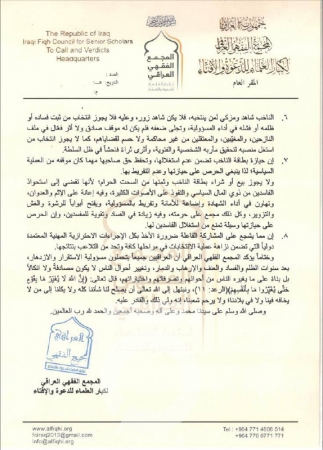 The Republic of Iraq
Iraqi Fiqh Council for Senior Scholars
To Call and Verdicts
Headquarters
جمهورية العراق
المجمع الفقهي العراقي
لكبار العلماء للدعوة والإفتاء
المقر العام
المجمع
الفقهي
العراقي
العدد :
٦. الناخب شاهد ومزكي لمن ينتخبه، فلا يكن شاهد زور، وعليه فلا يجوز انتخاب من ثبت فساده أو
ظلمه أو فشله في أداء المسؤولية، وتجلى ضعفه فلم يكن له موقف صادق ولا أثر فعال في ملف
النازحين، والمغيبين، والمعتقلين من غير محاكمة ولا حسم لقضاياهم، كما لا يجوز انتخاب من
استغل منصبه لتحقيق مآربه الشخصية والفئوية، وأثرى ثراءً فاحشاً في ظل السلطة.
٧. إن حيازة بطاقة الناخب تضمن عدم استغلالها، وتحفظ حق صاحبها مهما كان موقفه من العملية
السياسية؛ لذا ينبغي الحرص على حيازتها وعدم التفريط بها.
ولا يجوز بيع أو شراء بطاقة الناخب وثمنها من السحت الحرام؛ لأنها تفضي إلى استحواذ
الفاسدين من ذوي المال السياسي والنفوذ على الأصوات الكثيرة، وفيه إعانة على الإثم والعدوان،
وتهاون في أداء الشهادة وإضاعة للأمانة وتفريط بالمسؤولية، ويفتح أبواباً للرشوة والغش
والتزوير، وكل ذلك مجمع على حرمته، وفيه زيادة في الفساد وتقوية للمفسدين، وإن الحرص
على حيازتها وسيلة تمنع من استغلال الفاسدين لها.
٨. إن مما يشجع على المشاركة الفاعلة ضرورة الأخذ بكل الإجراءات الاحترازية المهنية المعتمدة
دولياً التي تضمن نزاهة عملية الانتخابات في مراحلها كافة وتحد من التلاعب بنتائجها.
وختاماً يؤكد المجمع الفقهي العراقي أن العراقيين جميعاً يتحملون مسؤولية الاستقرار والازدهار،
بعد سنوات الظلم والفساد والعنف والإرهاب والدمار، وتغيير أحوال الناس لا يكون مصادفة ولا اتكالاً
بل بناءً على ما يغيره الناس من أحوالهم وتصرفاتهم واختياراتهم، قال تعالى: (إِنَّ اللَّهَ لَا يُغَيِّرُ مَا بِقَوْمٍ
حَتَّى يُغَيِّرُوا مَا بِأَنْفُسِهِمْ) (الرعد: ١١)، ونبتهل إلى الله تعالى أن يصلح لنا شأننا كله ولا يكلنا إلى من لا
يخافه فينا ولا في بلادنا ولا يرحم شعبنا، إنه ولي ذلك والقادر عليه.
وصلى الله وسلم على سيدنا محمد وعلى آله وصحبه أجمعين والحمد لله رب العالمين.
المجمع الفقهي العراقي
لكبار العلماء للدعوة والإفتاء
http://alfiqhi.org
info@alfiqhi.org
Tel : +964 771 4806 514
+964 770 6771 771